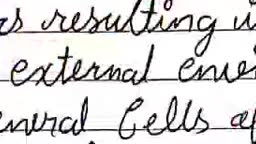 rs resulting i
external envi
eneral Cells of